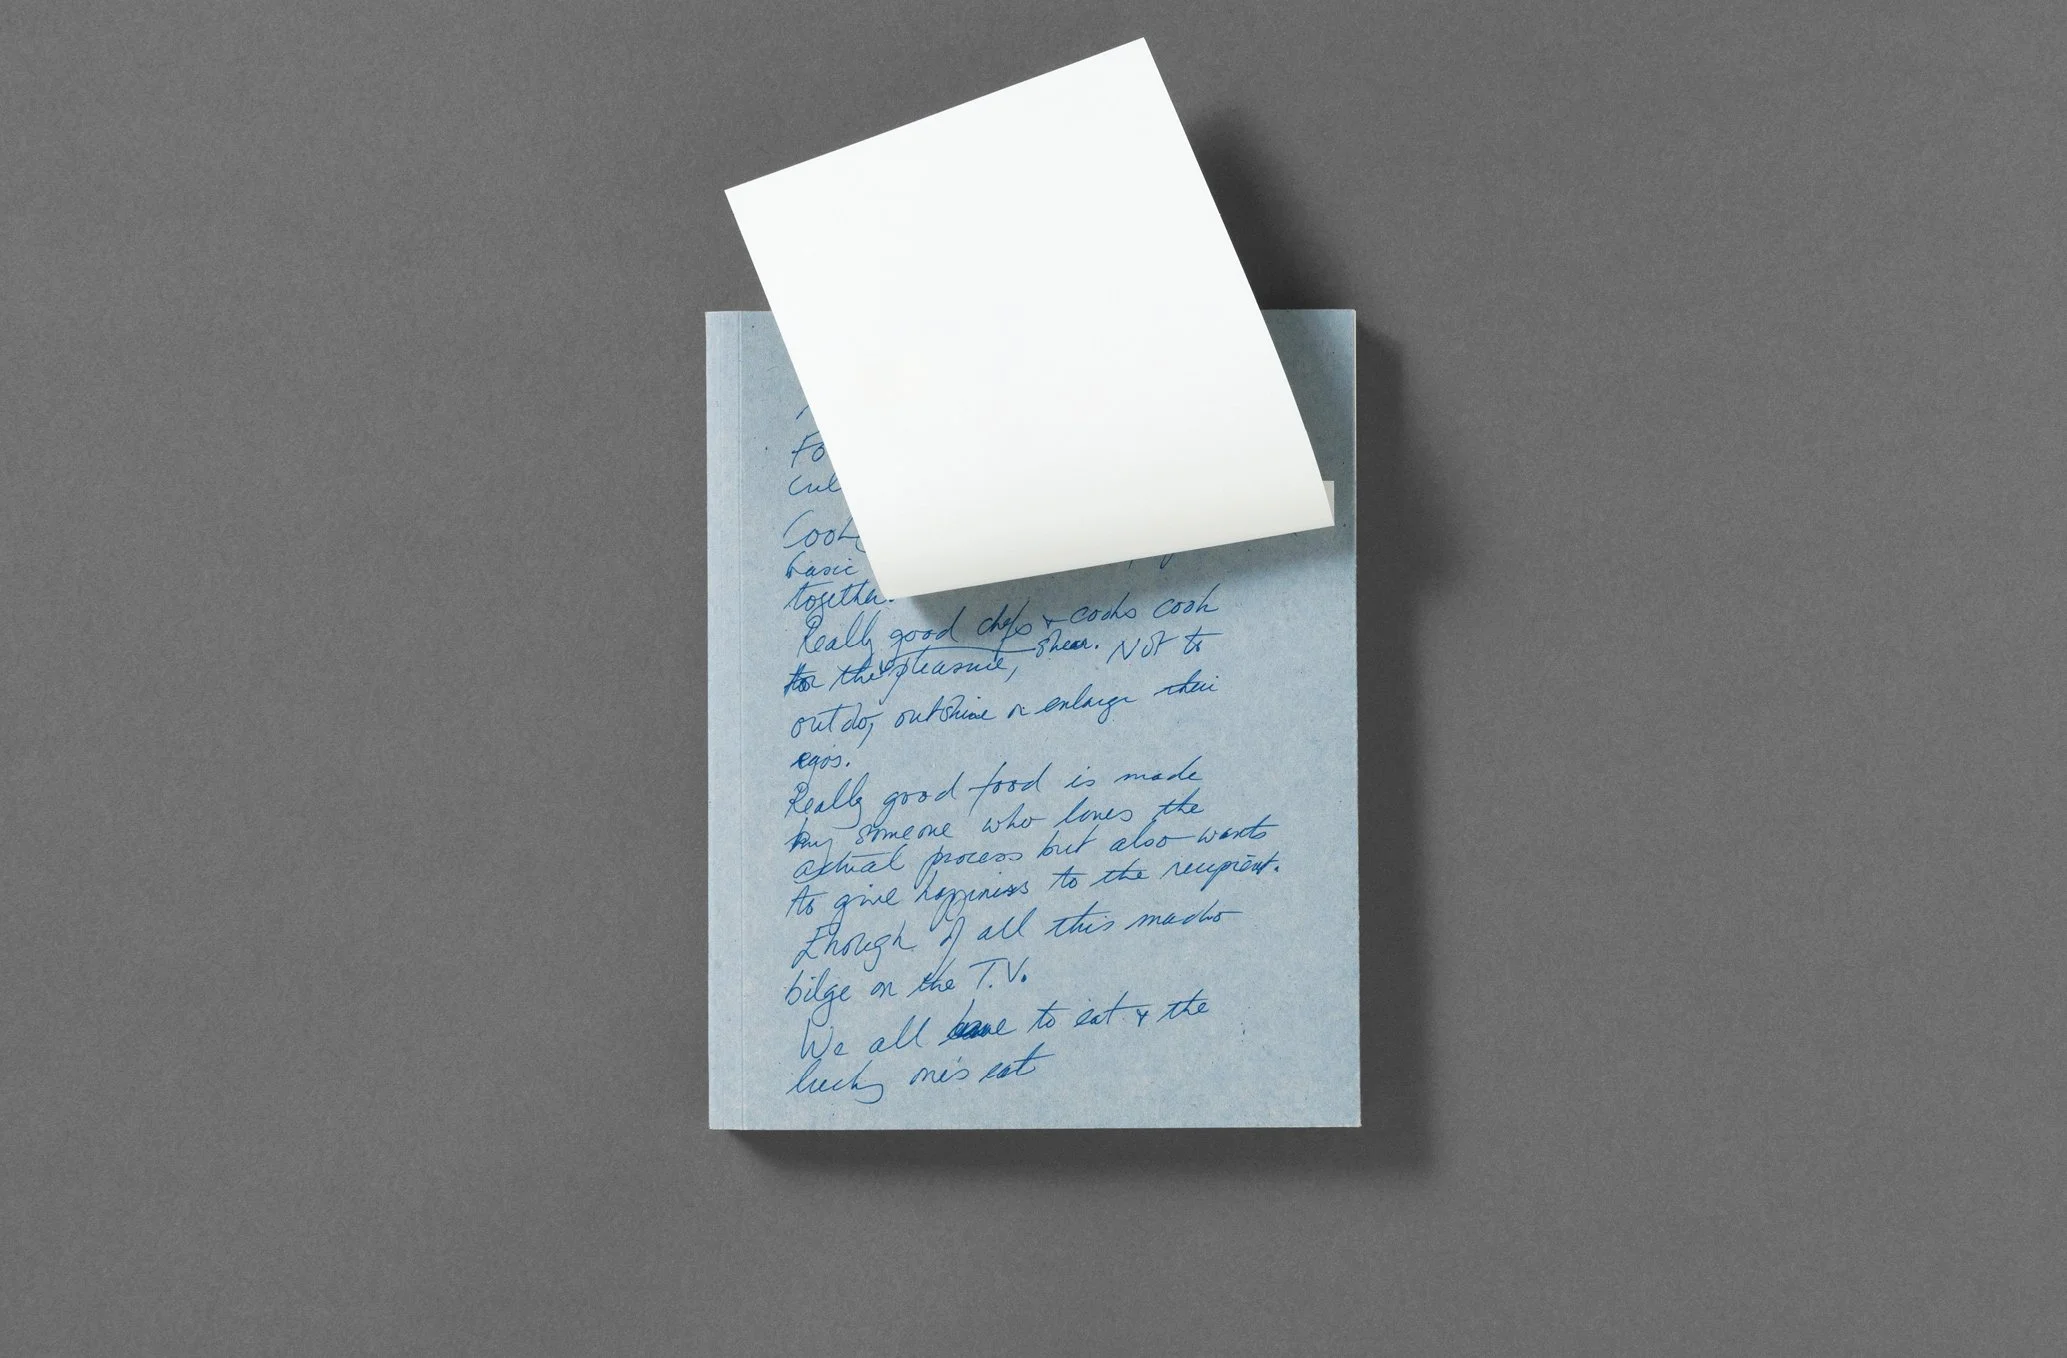 Fo
Cul
Cook
basic
together.
Really good chefs + cooks cook
for the pleasure, shear. Not to
outdo, outshine or enlarge their
egos.
Really good food is made
by someone who loves the
actual process but also wants
to give happiness to the recipient.
Enough of all this macho
bilge on the T.V.
We all have to eat + the
lucky one's eat